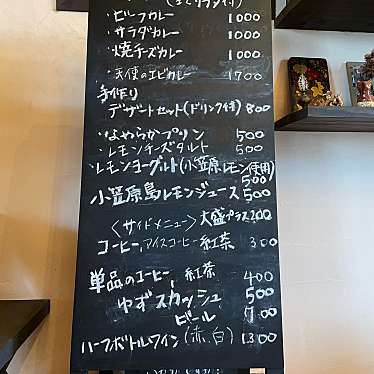 ・ビーフカレー 1000
・サラダカレー 1000
・焼チーズカレー 1000
・天使のエビカレー 1700
手作り
デザートセット(ドリンク付) 800
・なめらかプリン 500
・レモンチーズタルト 500
・レモンヨーグルト(小笠原レモン使用) 500
小笠原島レモンジュース 500
〈サイドメニュー〉大盛プラス200
コーヒー,アイスコーヒー 紅茶 300
単品のコーヒー,紅茶 400
ゆずスカッシュ 500
ビール 700
ハーフボトルワイン(赤,白) 1300